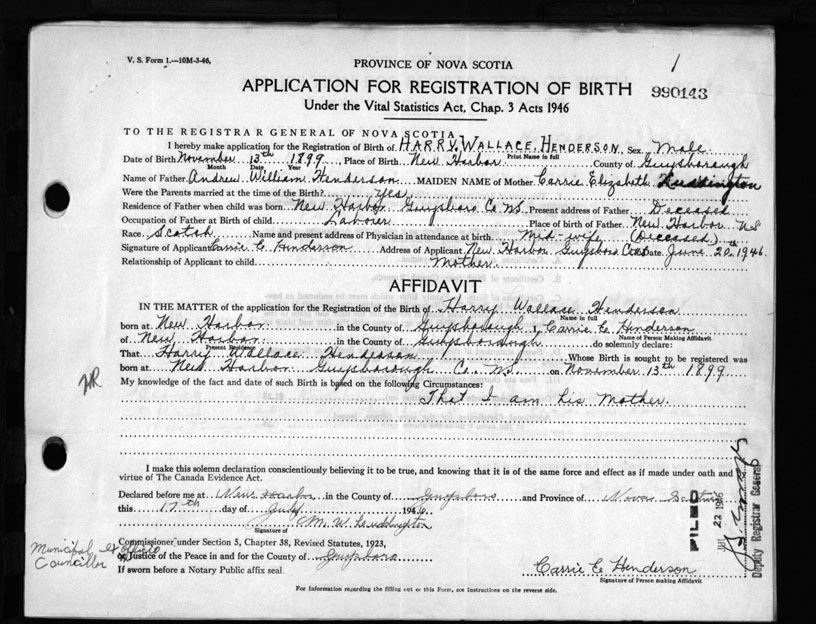 V. S. Form 1.—10M-3-46.
1
PROVINCE OF NOVA SCOTIA
APPLICATION FOR REGISTRATION OF BIRTH
990143
Under the Vital Statistics Act, Chap. 3 Acts 1946
TO THE REGISTRAR GENERAL OF NOVA SCOTIA
I hereby make application for the Registration of Birth of HARRY, WALLACE, HENDERSON, Sex Male
Print Name in full
Date of Birth November 13th 1899 Place of Birth New Harbor County of Guysborough
Month Date Year
Name of Father Andrew William Henderson MAIDEN NAME of Mother Carrie Elizabeth Luddington
Were the Parents married at the time of the Birth? yes
Residence of Father when child was born New Harbor Guysboro Co N.S. Present address of Father Deceased
Occupation of Father at Birth of child Laborer Place of birth of Father New Harbor N S
Race Scotch Name and present address of Physician in attendance at birth Mid-wife (Deceased)
Signature of Applicant Carrie E Henderson Address of Applicant New Harbor Guysboro Co Date June 20th 1946.
Relationship of Applicant to child Mother.
AFFIDAVIT
IN THE MATTER of the application for the Registration of the Birth of Harry Wallace Henderson
Name in full
born at New Harbor in the County of Guysborough I, Carrie E Henderson
Name of Person Making Affidavit
of New Harbor in the County of Guysborough do solemnly declare:
Present Residence
That Harry Wallace Henderson Whose Birth is sought to be registered was
born at New Harbor Guysborough Co. N.S. on November 13th 1899
My knowledge of the fact and date of such Birth is based on the following Circumstances:
That I am his Mother.
I make this solemn declaration conscientiously believing it to be true, and knowing that it is of the same force and effect as if made under oath and
virtue of The Canada Evidence Act.
Declared before me at New Harbor in the County of Guysboro and Province of Nova Scotia
this 17th day of July 1946.
M. W. Luddington
Signature of
Commissioner under Section 5, Chapter 38, Revised Statutes, 1923,
or Justice of the Peace in and for the County of Guysboro
Municipal ex officio
Councillor
If sworn before a Notary Public affix seal.
Carrie E Henderson
Signature of Person making Affidavit
For Information regarding the filling out of this Form, see Instructions on the reverse side.
FILED
JUL 22 1946
Deputy Registrar General